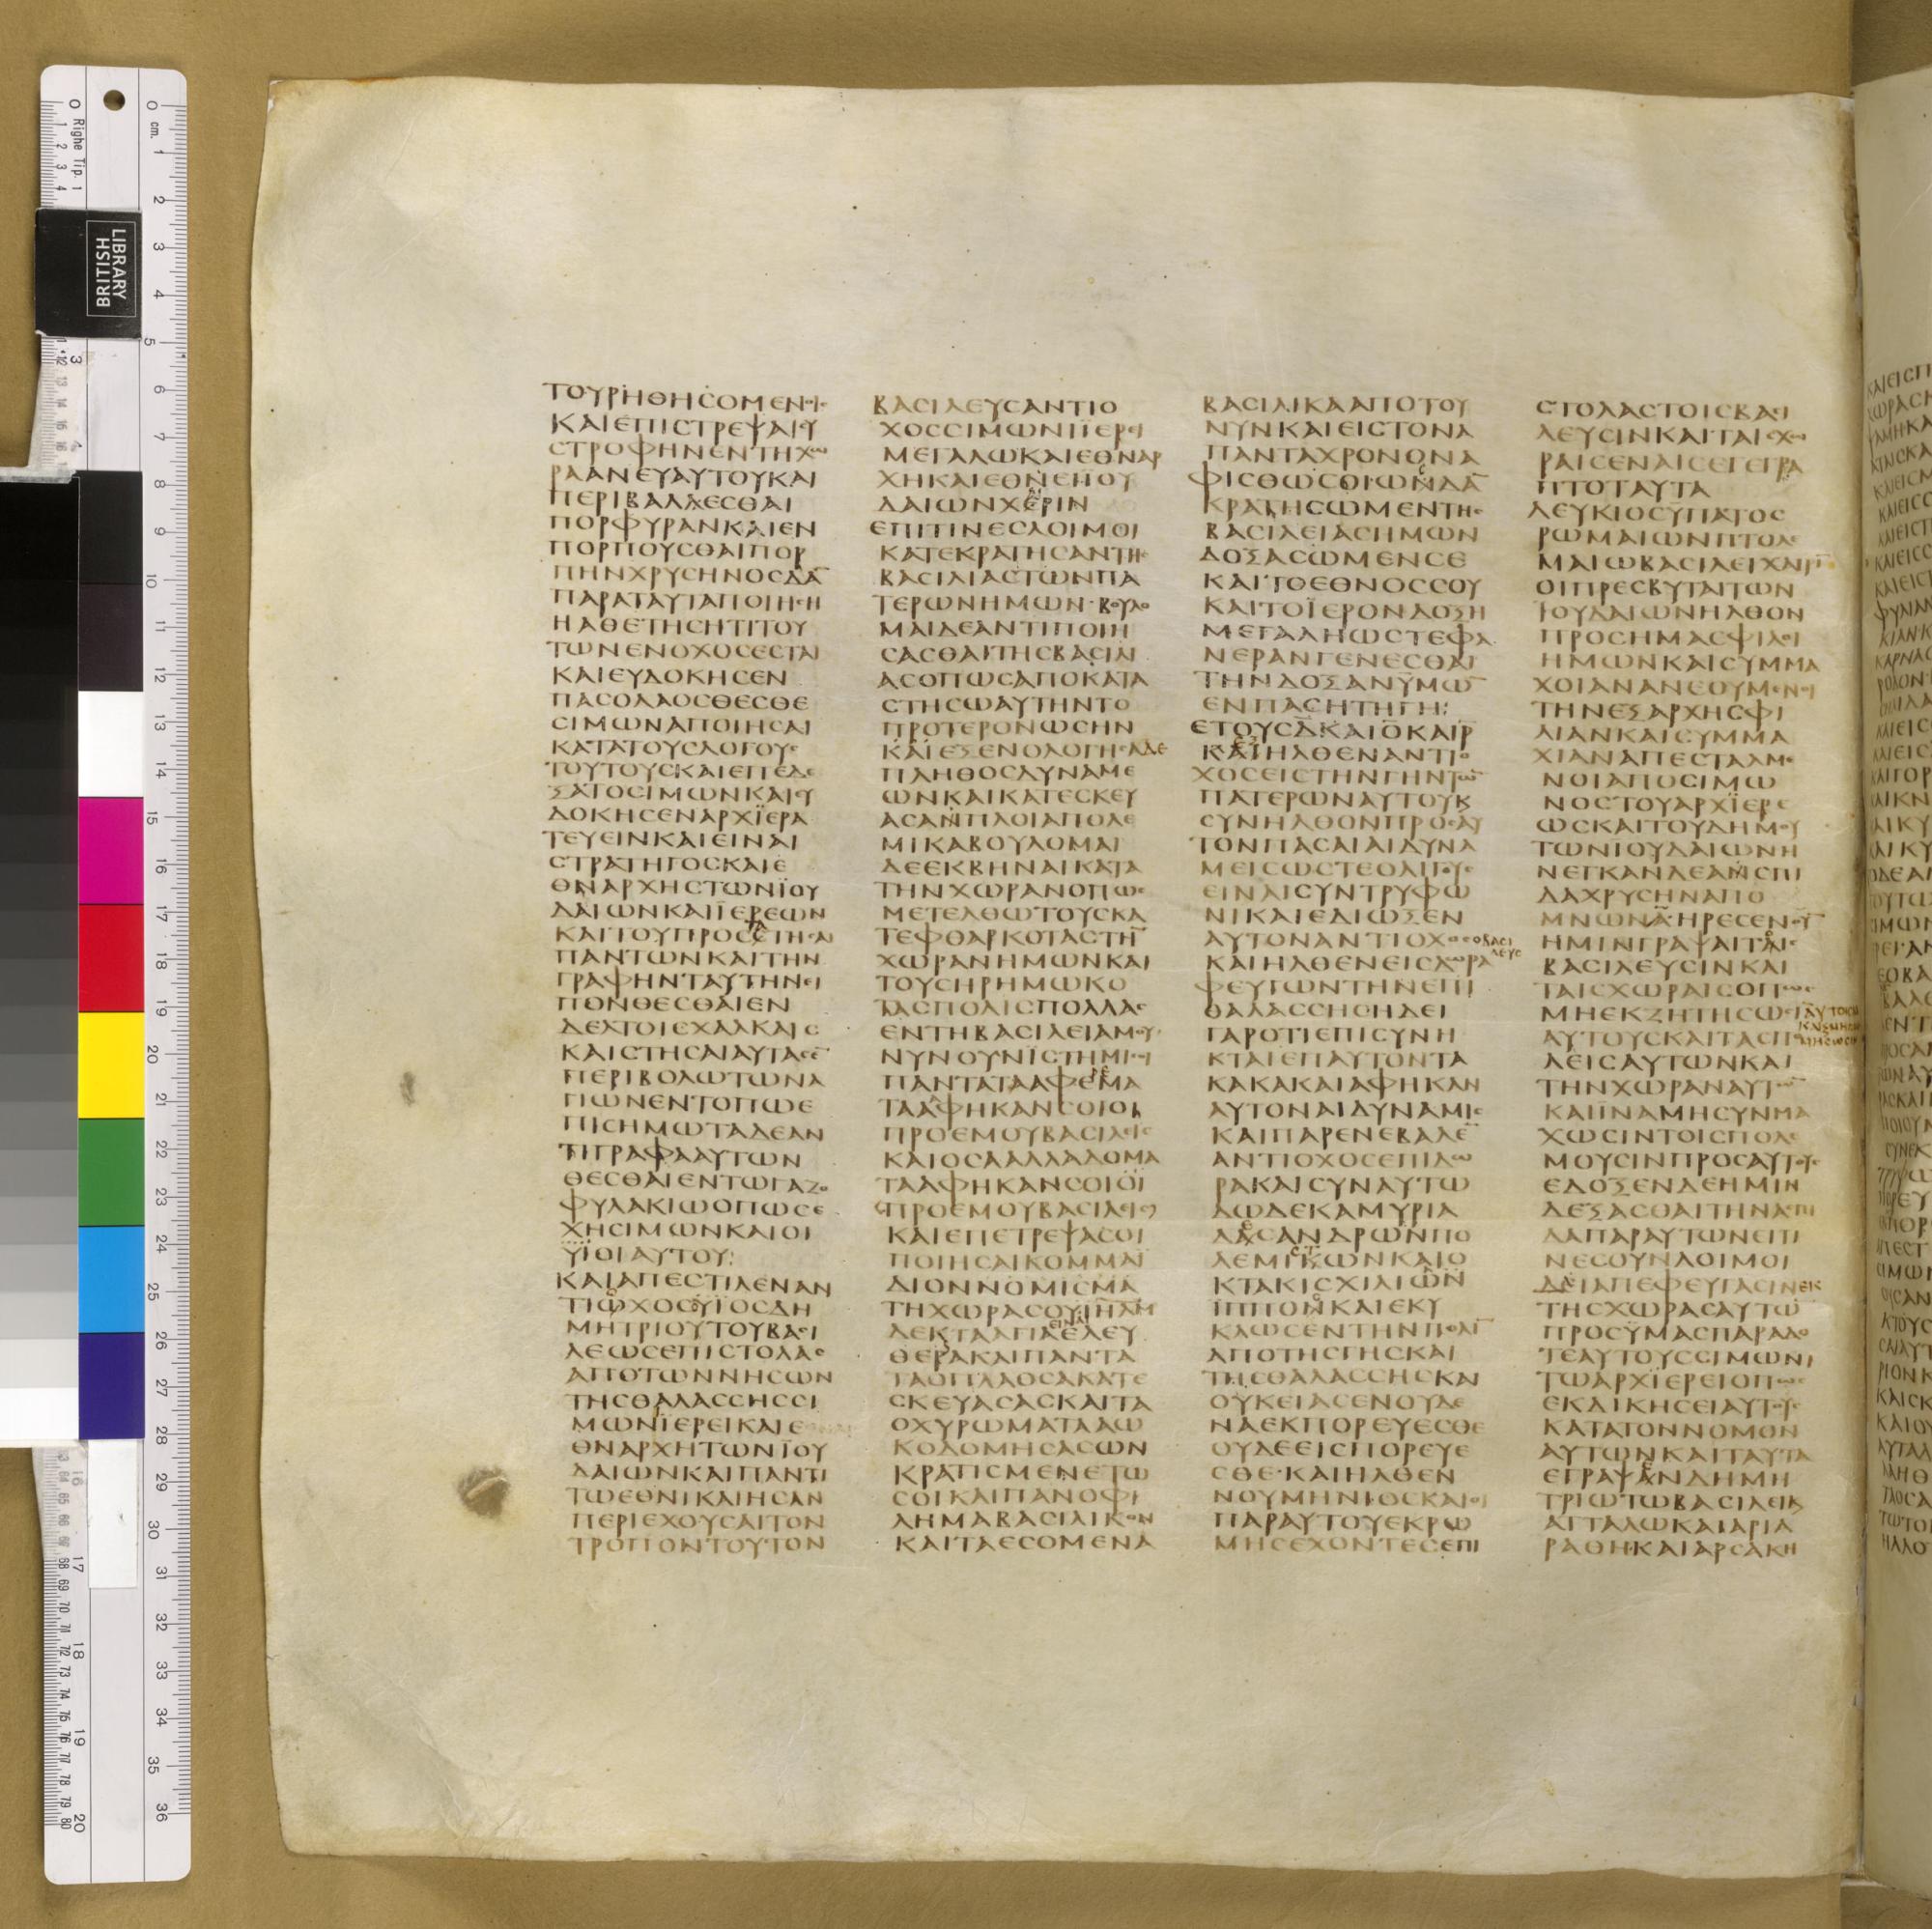 ΤΟΥΡΗΘΗϹΟΜΕΝΟΙϹ
ΚΑΙΕΠΙϹΤΡΕΨΑΙϹΥ
ϹΤΡΟΦΗΝΕΝΤΗΧΩ
ΡΑΑΝΕΥΑΥΤΟΥΚΑΙ
ΠΕΡΙΒΑΛΛΕϹΘΑΙ
ΠΟΡΦΥΡΑΝΚΑΙΕΝ
ΠΟΡΠΟΥϹΘΑΙΠΟΡ
ΠΗΝΧΡΥϹΗΝΟϹΔΑ̅
ΠΑΡΑΤΑΥΤΑΠΟΙΗϹΗ
ΗΑΘΕΤΗϹΗΤΙΤΟΥ
ΤΩΝΕΝΟΧΟϹΕϹΤΑΙ
ΚΑΙΕΥΔΟΚΗϹΕΝ
ΠΑϹΟΛΑΟϹΘΕϹΘΕ
ϹΙΜΩΝΑΠΟΙΗϹΑΙ
ΚΑΤΑΤΟΥϹΛΟΓΟΥϹ
ΤΟΥΤΟΥϹΚΑΙΕΠΕΔΕ
ΞΑΤΟϹΙΜΩΝΚΑΙΕΥ
ΔΟΚΗϹΕΝΑΡΧΪΕΡΑ
ΤΕΥΕΙΝΚΑΙΕΙΝΑΙ
ϹΤΡΑΤΗΓΟϹΚΑΙΕ
ΘΝΑΡΧΗϹΤΩΝΪΟΥ
ΔΑΙΩΝΚΑΙΪΕΡΕΩΝ
ΚΑΙΤΟΥΠΡΟϹΤΑΤΗϹΑΙ
ΠΑΝΤΩΝΚΑΙΤΗΝ
ΓΡΑΦΗΝΤΑΥΤΗΝΕΙ
ΠΟΝΘΕϹΘΑΙΕΝ
ΔΕΛΤΟΙϹΧΑΛΚΑΙϹ
ΚΑΙϹΤΗϹΑΙΑΥΤΑϹΕ̅
ΠΕΡΙΒΟΛΩΤΩΝΑ
ΓΙΩΝΕΝΤΟΠΩΕ
ΠΙϹΗΜΩΤΑΔΕΑΝ
ΤΙΓΡΑΦΑΑΥΤΩΝ
ΘΕϹΘΑΙΕΝΤΩΓΑΖΟ
ΦΥΛΑΚΙΩΟΠΩϹΕ
ΧΗϹΙΜΩΝΚΑΙΟΙ
ΥΪΟΙΑΥΤΟΥ:
ΚΑΙΑΠΕϹΤΙΛΕΝΑΝ
ΤΙΟΧΟϹΥΪΟϹΔΗ
ΜΗΤΡΙΟΥΤΟΥΒΑϹΙ
ΛΕΩϹΕΠΙϹΤΟΛΑϹ
ΑΠΟΤΩΝΝΗϹΩΝ
ΤΗϹΘΑΛΑϹϹΗϹϹΙ
ΜΩΝΪΕΡΕΙΚΑΙΕ
ΘΝΑΡΧΗΤΩΝΪΟΥ
ΔΑΙΩΝΚΑΙΠΑΝΤΙ
ΤΩΕΘΝΙΚΑΙΗϹΑΝ
ΠΕΡΙΕΧΟΥϹΑΙΤΟΝ
ΤΡΟΠΟΝΤΟΥΤΟΝ
ΒΑϹΙΛΕΥϹΑΝΤΙΟ
ΧΟϹϹΙΜΩΝΙΪΕΡΕΙ
ΜΕΓΑΛΩΚΑΙΕΘΝΑΡ
ΧΗΚΑΙΕΘΝΕΙΪΟΥ
ΔΑΙΩΝΧΑΙΡΙΝ
ΕΠΙΤΙΝΕϹΛΟΙΜΟΙ
ΚΑΤΕΚΡΑΤΗϹΑΝΤΗϹ
ΒΑϹΙΛΙΑϹΤΩΝΠΑ
ΤΕΡΩΝΗΜΩΝ·ΒΟΥΛΟ
ΜΑΙΔΕΑΝΤΙΠΟΙΗ
ϹΑϹΘΑΙΤΗϹΒΑϹΙΛΙ
ΑϹΟΠΩϹΑΠΟΚΑΤΑ
ϹΤΗϹΩΑΥΤΗΝΤΟ
ΠΡΟΤΕΡΟΝΩϹΗΝ
ΚΑΙΕΞΕΝΟΛΟΓΗϹΑΔΕ
ΠΛΗΘΟϹΔΥΝΑΜΕ
ΩΝΚΑΙΚΑΤΕϹΚΕΥ
ΑϹΑΝΠΛΟΙΑΠΟΛΕ
ΜΙΚΑΒΟΥΛΟΜΑΙ
ΔΕΕΚΒΗΝΑΙΚΑΤΑ
ΤΗΝΧΩΡΑΝΟΠΩϹ
ΜΕΤΕΛΘΩΤΟΥϹΚΑ
ΤΕΦΘΑΡΚΟΤΑϹΤΗ̅
ΧΩΡΑΝΗΜΩΝΚΑΙ
ΤΟΥϹΗΡΗΜΩΚΟ
ΤΑϹΠΟΛΙϹΠΟΛΛΑϹ
ΕΝΤΗΒΑϹΙΛΕΙΑΜΟΥ
ΝΥΝΟΥΝΪϹΤΗΜΙϹΟΙ
ΠΑΝΤΑΤΑΑΦΕΡΕΜΑ
ΤΑΑΦΗΚΑΝϹΟΙΟΙ
ΠΡΟΕΜΟΥΒΑϹΙΛΕΙϹ
ΚΑΙΟϹΑΑΛΛΑΔΟΜΑ
ΤΑΑΦΗΚΑΝϹΟΙΟΪ
ΠΡΟΕΜΟΥΒΑϹΙΛΕΙϹ
ΚΑΙΕΠΕΤΡΕΨΑϹΟΙ
ΠΟΙΗϹΑΙΚΟΜΜΑΪ
ΔΙΟΝΝΟΜΙϹΜΑ
ΤΗΧΩΡΑϹΟΥΙΗΛΜ
ΔΕΚΤΑΑΓΙΑΕΙΝΑΙΕΛΕΥ
ΘΕΡΑΚΑΙΠΑΝΤΑ
ΤΑΟΠΛΑΟϹΑΚΑΤΕ
ϹΚΕΥΑϹΑϹΚΑΙΤΑ
ΟΧΥΡΩΜΑΤΑΑΩ
ΚΟΔΟΜΗϹΑϹΩΝ
ΚΡΑΤΙϹΜΕΝΕΤΩ
ϹΟΙΚΑΙΠΑΝΟΦΙ
ΛΗΜΑΒΑϹΙΛΙΚΟΝ
ΚΑΙΤΑΕϹΟΜΕΝΑ
ΒΑϹΙΛΙΚΑΑΠΟΤΟΥ
ΝΥΝΚΑΙΕΙϹΤΟΝΑ
ΠΑΝΤΑΧΡΟΝΟΝΑ
ΦΙϹΘΩϹΟΙΩϹΔΑ̅
ΚΡΑΤΗϹΩΜΕΝΤΗϹ
ΒΑϹΙΛΕΙΑϹΗΜΩΝ
ΔΟΞΑϹΩΜΕΝϹΕ
ΚΑΙΤΟΕΘΝΟϹϹΟΥ
ΚΑΙΤΟΪΕΡΟΝΔΟΞΗ
ΜΕΓΑΛΗΩϹΤΕΦΑ
ΝΕΡΑΝΓΕΝΕϹΘΑΙ
ΤΗΝΔΟΞΑΝΫΜΩ̅
ΕΝΠΑϹΗΤΗΓΗ:
ΕΤΟΥϹΔ̅ΚΑΙΟ̅ΚΑΙΡ̅
ΚΑΙΕΞΗΛΘΕΝΑΝΤΙΟ
ΧΟϹΕΙϹΤΗΝΓΗΝΤΩ̅
ΠΑΤΕΡΩΝΑΥΤΟΥΚ
ϹΥΝΗΛΘΟΝΠΡΟϹΑΥ
ΤΟΝΠΑϹΑΙΑΙΔΥΝΑ
ΜΕΙϹΩϹΤΕΟΛΙΓΟΥϹ
ΕΙΝΑΙϹΥΝΤΡΥΦΩ
ΝΙΚΑΙΕΔΙΩΞΕΝ
ΑΥΤΟΝΑΝΤΙΟΧΟϹΟΒΑϹΙ
ΛΕΥϹ
ΚΑΙΗΛΘΕΝΕΙϹΔΩΡΑ
ΦΕΥΓΩΝΤΗΝΕΠΙ
ΘΑΛΑϹϹΗϹΗΔΕΙ
ΓΑΡΟΤΙΕΠΙϹΥΝΗ
ΚΤΑΙΕΠΑΥΤΟΝΤΑ
ΚΑΚΑΚΑΙΑΦΗΚΑΝ
ΑΥΤΟΝΑΙΔΥΝΑΜΙϹ
ΚΑΙΠΑΡΕΝΕΒΑΛΕ̅
ΑΝΤΙΟΧΟϹΕΠΙΔΩ
ΡΑΚΑΙϹΥΝΑΥΤΩ
ΔΩΔΕΚΑΜΥΡΙΑ
ΔΕϹΑΝΔΡΩΝΠΟ
ΛΕΜΙϹΤΩΝΚΑΙΟ
ΚΤΑΚΙϹΧΙΛΙΩΝ
ΪΠΠΟΝΚΑΙΕΚΥ
ΚΛΩϹΕΝΤΗΝΠΟΛΙ̅
ΑΠΟΤΗϹΓΗϹΚΑΙ
ΤΗϹΘΑΛΑϹϹΗϹΚΑΙ
ΟΥΚΕΙΑϹΕΝΟΥΔΕ
ΝΑΕΚΠΟΡΕΥΕϹΘΕ
ΟΥΔΕΕΙϹΠΟΡΕΥΕ
ϹΘΕ·ΚΑΙΗΛΘΕΝ
ΝΟΥΜΗΝΙΟϹΚΑΙΟΙ
ΠΑΡΑΥΤΟΥΕΚΡΩ
ΜΗϹΕΧΟΝΤΕϹΕΠΙ
ϹΤΟΛΑϹΤΟΙϹΒΑϹΙ
ΛΕΥϹΙΝΚΑΙΤΑΙϹΧΩ
ΡΑΙϹΕΝΑΙϹΕΓΕΓΡΑ
ΠΤΟΤΑΥΤΑ
ΛΕΥΚΙΟϹΥΠΑΤΟϹ
ΡΩΜΑΙΩΝΠΤΟΛΕ
ΜΑΙΩΒΑϹΙΛΕΙΧΑΙΡΙ̅
ΟΙΠΡΕϹΒΥΤΑΙΤΩΝ
ΪΟΥΔΑΙΩΝΗΛΘΟΝ
ΠΡΟϹΗΜΑϹΦΙΛΟΙ
ΗΜΩΝΚΑΙϹΥΜΜΑ
ΧΟΙΑΝΑΝΕΟΥΜΕΝΟΙ
ΤΗΝΕΞΑΡΧΗϹΦΙ
ΛΙΑΝΚΑΙϹΥΜΜΑ
ΧΙΑΝΑΠΕϹΤΑΛΜΕ
ΝΟΙΑΠΟϹΙΜΩ
ΝΟϹΤΟΥΑΡΧΪΕΡΕ
ΩϹΚΑΙΤΟΥΔΗΜΟΥ
ΤΩΝΙΟΥΔΑΙΩΝΗ
ΝΕΓΚΑΝΔΕΑϹΠΙ
ΔΑΧΡΥϹΗΝΑΠΟ
ΜΝΩΝ͵ΑΗΡΕϹΕΝΟΥ̅
ΗΜΙΝΓΡΑΨΑΙΤΟΙϹ
ΒΑϹΙΛΕΥϹΙΝΚΑΙ
ΤΑΙϹΧΩΡΑΙϹΟΠΩϹ
ΜΗΕΚΖΗΤΗϹΩϹΙ
ΑΥΤΟΥϹΚΑΙΤΑϹΠΟ
ΛΕΙϹΑΥΤΩΝΚΑΙ
ΤΗΝΧΩΡΑΝΑΥΤΩ̅
ΚΑΙΪΝΑΜΗϹΥΝΜΑ
ΧΩϹΙΝΤΟΙϹΠΟΛΕ
ΜΟΥϹΙΝΠΡΟϹΑΥΤΟΥϹ
ΕΔΟΞΕΝΔΕΗΜΙΝ
ΔΕΞΑϹΘΑΙΤΗΝΑϹΠΙ
ΔΑΠΑΡΑΥΤΩΝΕΙΤΙ
ΝΕϹΟΥΝΛΟΙΜΟΙ
ΔΙΑΠΕΦΕΥΓΑϹΙΝΕΚ
ΤΗϹΧΩΡΑϹΑΥΤΩ̅
ΠΡΟϹΫΜΑϹΠΑΡΑΔΟ
ΤΕΑΥΤΟΥϹϹΙΜΩΝΙ
ΤΩΑΡΧΪΕΡΕΙΟΠΩϹ
ΕΚΔΙΚΗϹΕΙΑΥΤΟΥϹ
ΚΑΤΑΤΟΝΝΟΜΟΝ
ΑΥΤΩΝΚΑΙΤΑΥΤΑ
ΕΓΡΑΨΕΝΔΗΜΗ
ΤΡΙΩΤΩΒΑϹΙΛΕΙΚ
ΑΤΤΑΛΩΚΑΙΑΡΙΑ
ΡΑΘΗΚΑΙΑΡϹΑΚΗ
BRITISH
LIBRARY